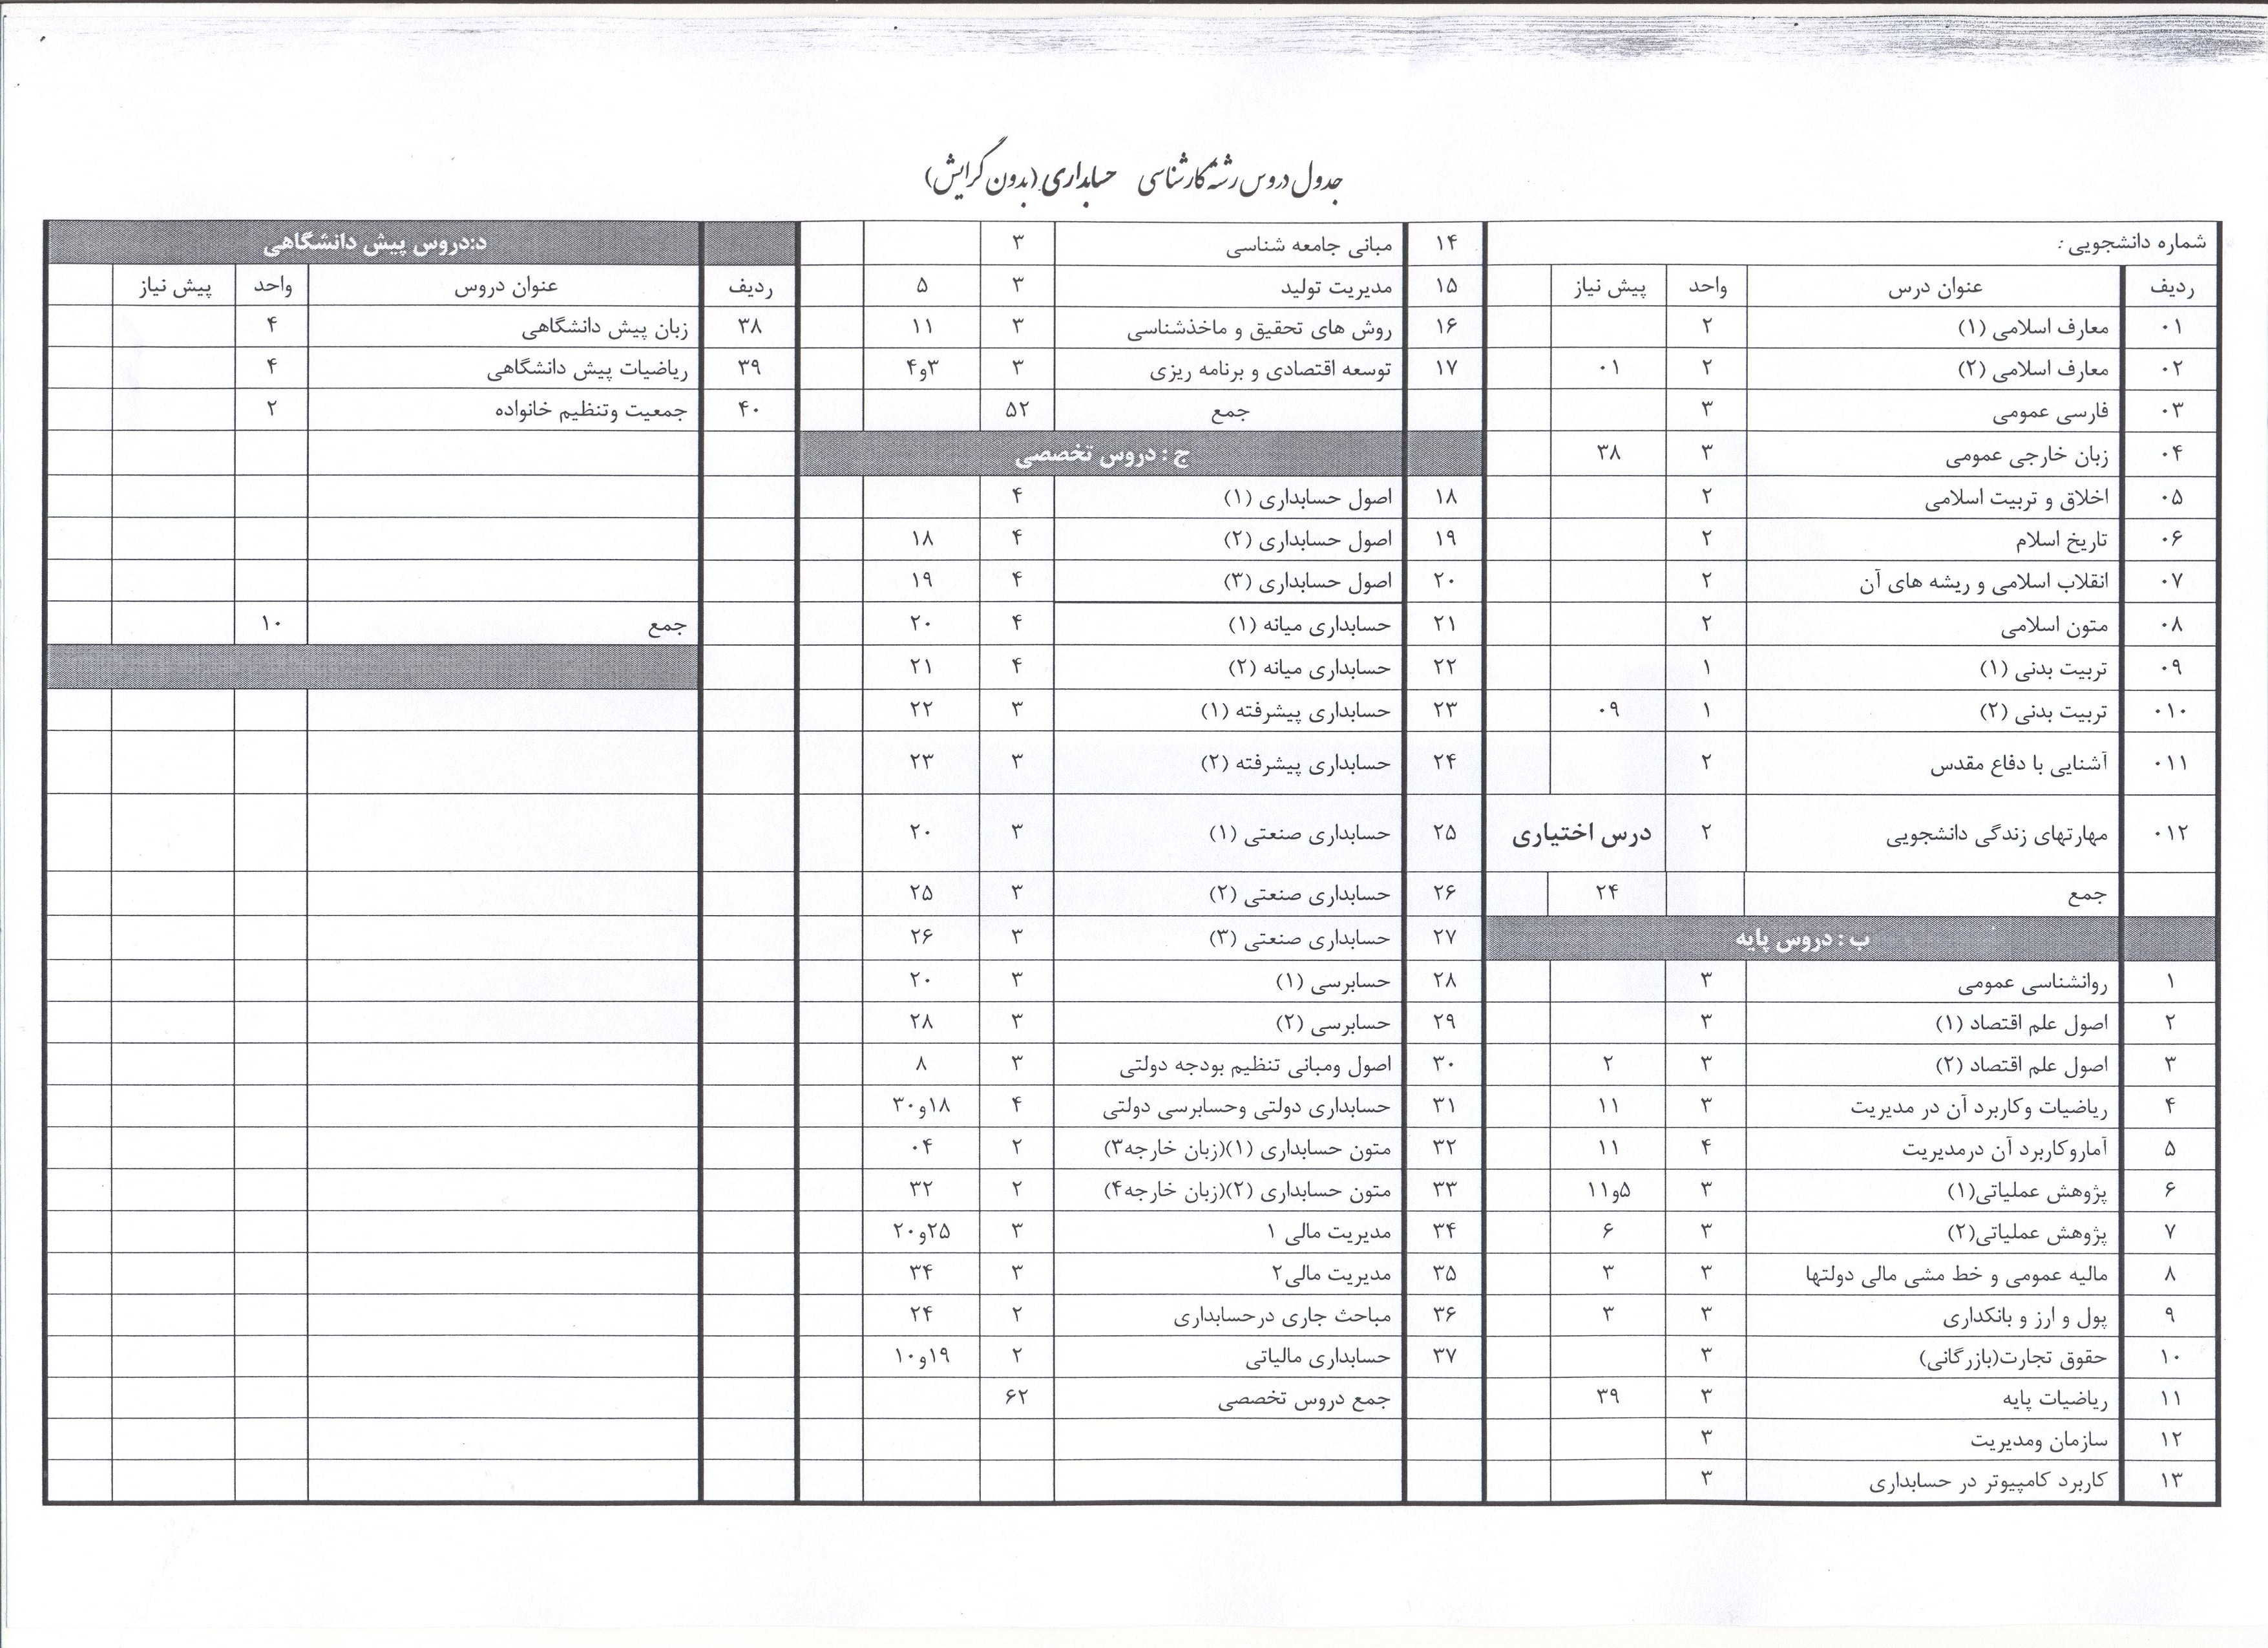 جدول دروس رشته کارشناسی حسابداری (بدون گرایش)
شماره دانشجویی :
ردیف عنوان درس واحد پیش نیاز
۰۱ معارف اسلامی (۱) ۲
۰۲ معارف اسلامی (۲) ۲ ۰۱
۰۳ فارسی عمومی ۳
۰۴ زبان خارجی عمومی ۳ ۳۸
۰۵ اخلاق و تربیت اسلامی ۲
۰۶ تاریخ اسلام ۲
۰۷ انقلاب اسلامی و ریشه های آن ۲
۰۸ متون اسلامی ۲
۰۹ تربیت بدنی (۱) ۱
۰۱۰ تربیت بدنی (۲) ۱ ۰۹
۰۱۱ آشنایی با دفاع مقدس ۲
۰۱۲ مهارتهای زندگی دانشجویی ۲ درس اختیاری
جمع ۲۴
ب : دروس پایه
۱ روانشناسی عمومی ۳
۲ اصول علم اقتصاد (۱) ۳
۳ اصول علم اقتصاد (۲) ۳ ۲
۴ ریاضیات وکاربرد آن در مدیریت ۳ ۱۱
۵ آماروکاربرد آن درمدیریت ۴ ۱۱
۶ پژوهش عملیاتی(۱) ۳ ۵و۱۱
۷ پژوهش عملیاتی(۲) ۳ ۶
۸ مالیه عمومی و خط مشی مالی دولتها ۳ ۳
۹ پول و ارز و بانکداری ۳ ۳
۱۰ حقوق تجارت(بازرگانی) ۳
۱۱ ریاضیات پایه ۳ ۳۹
۱۲ سازمان ومدیریت ۳
۱۳ کاربرد کامپیوتر در حسابداری ۳
۱۴ مبانی جامعه شناسی ۳
۱۵ مدیریت تولید ۳ ۵
۱۶ روش های تحقیق و ماخذشناسی ۳ ۱۱
۱۷ توسعه اقتصادی و برنامه ریزی ۳ ۳و۴
جمع ۵۲
ج : دروس تخصصی
۱۸ اصول حسابداری (۱) ۴
۱۹ اصول حسابداری (۲) ۴ ۱۸
۲۰ اصول حسابداری (۳) ۴ ۱۹
۲۱ حسابداری میانه (۱) ۴ ۲۰
۲۲ حسابداری میانه (۲) ۴ ۲۱
۲۳ حسابداری پیشرفته (۱) ۳ ۲۲
۲۴ حسابداری پیشرفته (۲) ۳ ۲۳
۲۵ حسابداری صنعتی (۱) ۳ ۲۰
۲۶ حسابداری صنعتی (۲) ۳ ۲۵
۲۷ حسابداری صنعتی (۳) ۳ ۲۶
۲۸ حسابرسی (۱) ۳ ۲۰
۲۹ حسابرسی (۲) ۳ ۲۸
۳۰ اصول ومبانی تنظیم بودجه دولتی ۳ ۸
۳۱ حسابداری دولتی وحسابرسی دولتی ۴ ۱۸و۳۰
۳۲ متون حسابداری (۱)(زبان خارجه۳) ۲ ۰۴
۳۳ متون حسابداری (۲)(زبان خارجه۴) ۲ ۳۲
۳۴ مدیریت مالی ۱ ۳ ۲۵و۲۰
۳۵ مدیریت مالی۲ ۳ ۳۴
۳۶ مباحث جاری درحسابداری ۲ ۲۴
۳۷ حسابداری مالیاتی ۲ ۱۹و۱۰
جمع دروس تخصصی ۶۲
د:دروس پیش دانشگاهی
ردیف عنوان دروس واحد پیش نیاز
۳۸ زبان پیش دانشگاهی ۴
۳۹ ریاضیات پیش دانشگاهی ۴
۴۰ جمعیت وتنظیم خانواده ۲
جمع ۱۰